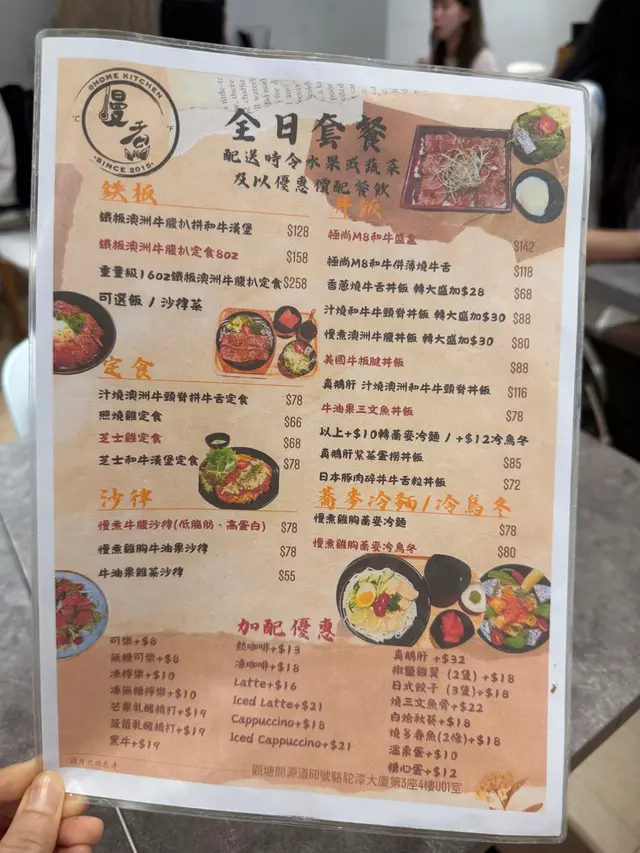 @HOME KITCHEN
慢煮
°C
°F
·SINCE 2015·
全日套餐
配送時令水果或蔬菜
及以優惠價配餐飲
鉄板
鐵板澳洲牛腹扒拼和牛漢堡 $128
鐵板澳洲牛腹扒定食8oz $158
重量級16oz鐵板澳洲牛腹扒定食 $258
可選飯 / 沙律菜
定食
汁燒澳洲和牛頸脊拼牛舌定食 $78
照燒雞定食 $66
芝士雞定食 $68
芝士和牛漢堡定食 $78
沙律
慢煮牛腹沙律(低脂肪、高蛋白) $78
慢煮雞胸牛油果沙律 $78
牛油果雞菜沙律 $55
丼飯
極尚M8和牛盛盒 $142
極尚M8和牛併薄燒牛舌 $118
香蔥燒牛舌丼飯 轉大盛加$28 $68
汁燒和牛牛頸脊丼飯 轉大盛加$30 $88
慢煮澳洲牛腹丼飯 轉大盛加$30 $80
美國牛板腱丼飯 $88
真鵝肝 汁燒澳洲和牛牛頸脊丼飯 $116
牛油果三文魚丼飯 $78
以上+$10轉蕎麥冷麵 / +$12冷烏冬
真鵝肝紫菜蛋撈丼飯 $85
日本豚肉碎丼牛舌粒丼飯 $72
蕎麥冷麵/冷烏冬
慢煮雞胸蕎麥冷麵 $78
慢煮雞胸蕎麥冷烏冬 $80
加配優惠
可樂+$8
無糖可樂+$8
凍檸樂+$10
凍無糖檸樂+$10
芒果乳酸梳打+$19
菠蘿乳酸梳打+$19
黑牛+$19
熱咖啡+$13
凍咖啡+$18
Latte+$16
Iced Latte+$21
Cappuccino+$18
Iced Cappuccino+$21
真鵝肝 +$32
椒鹽雞翼 (2隻) +$18
日式餃子 (3隻)+$18
燒三文魚骨+$22
白焓秋葵+$18
燒多春魚(2條)+$18
溫泉蛋+$10
糖心蛋+$12
圖片只供參考
觀塘開源道60號駱駝漆大廈第3座4樓U01室